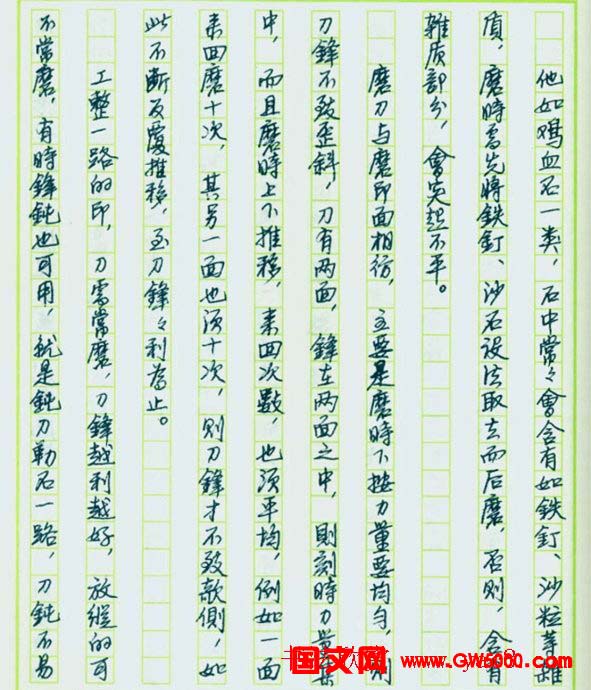 他如鸡血石一类，石中常々會含有如鉄釘、沙粒等雜
质，磨時需先將鉄釘、沙石设法取去而后磨，否則，含有
雜质部分，會突起不平。
磨刀与磨印面相彷，主要是磨時下按力量要均匀，則
刀鋒不致歪斜，刀有两面，鋒在两面之中，則刻時力量集
中，而且磨時上下推移，来回次數，也须平均，例如一面
来回磨十次，其另一面也须十次，則刀鋒才不致欹側，如
此不断反覆推移，至刀鋒々利為止。
工整一路的印，刀需常磨，刀鋒越利越好，放縱的可
不常磨，有時鋒鈍也可用，就是鈍刀勒石一路，刀鈍不易
国文网 www.GW5000.com